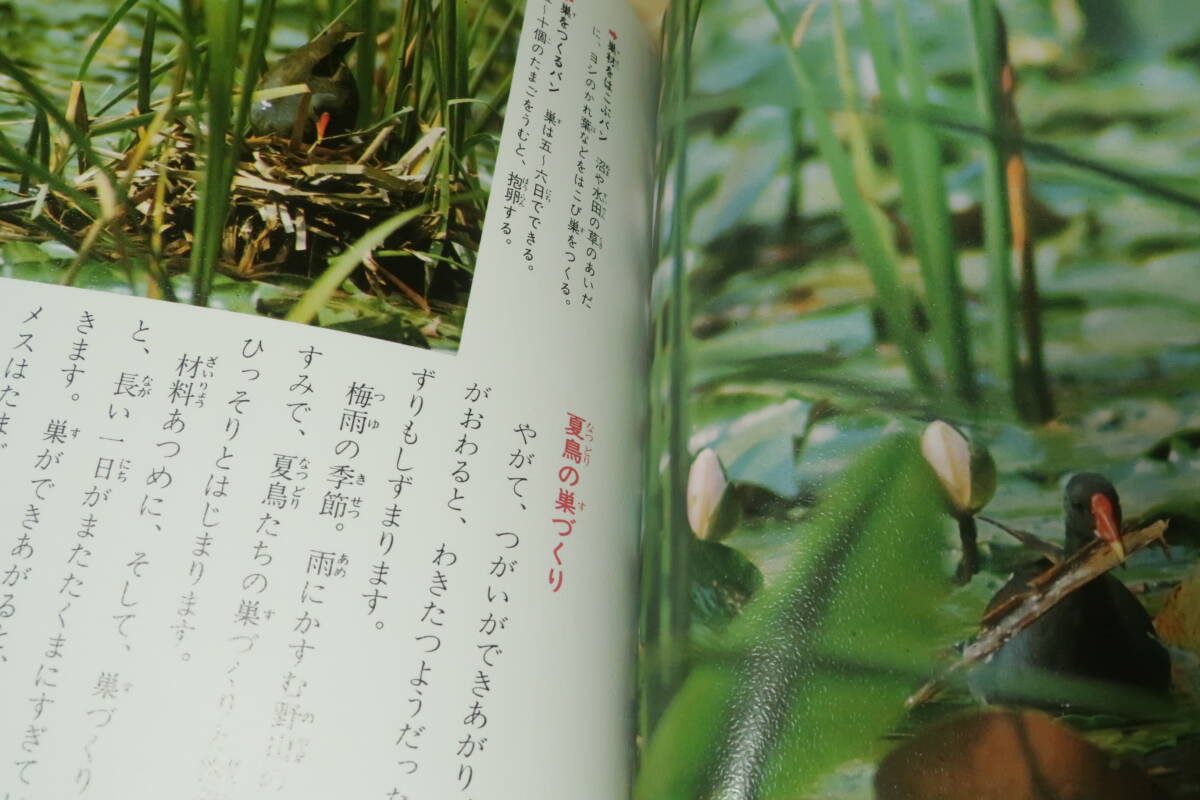 巣材をはこぶバン　沼や水田の草のあいだ
に、ヨシのかれ葉などをはこび巣をつくる。
巣をつくるバン　巣は五〜六日でできる。
〜十個のたまごをうむと、抱卵する。
夏鳥の巣づくり
やがて、つがいができあがり
がおわると、わきたつようだっ
ずりもしずまります。
梅雨の季節。雨にかすむ野山の
すみで、夏鳥たちの巣づくり
ひっそりとはじまります。
材料あつめに、そして、巣づくり
と、長い一日がまたたくまにすぎてい
きます。巣ができあがると、
メスはたまご